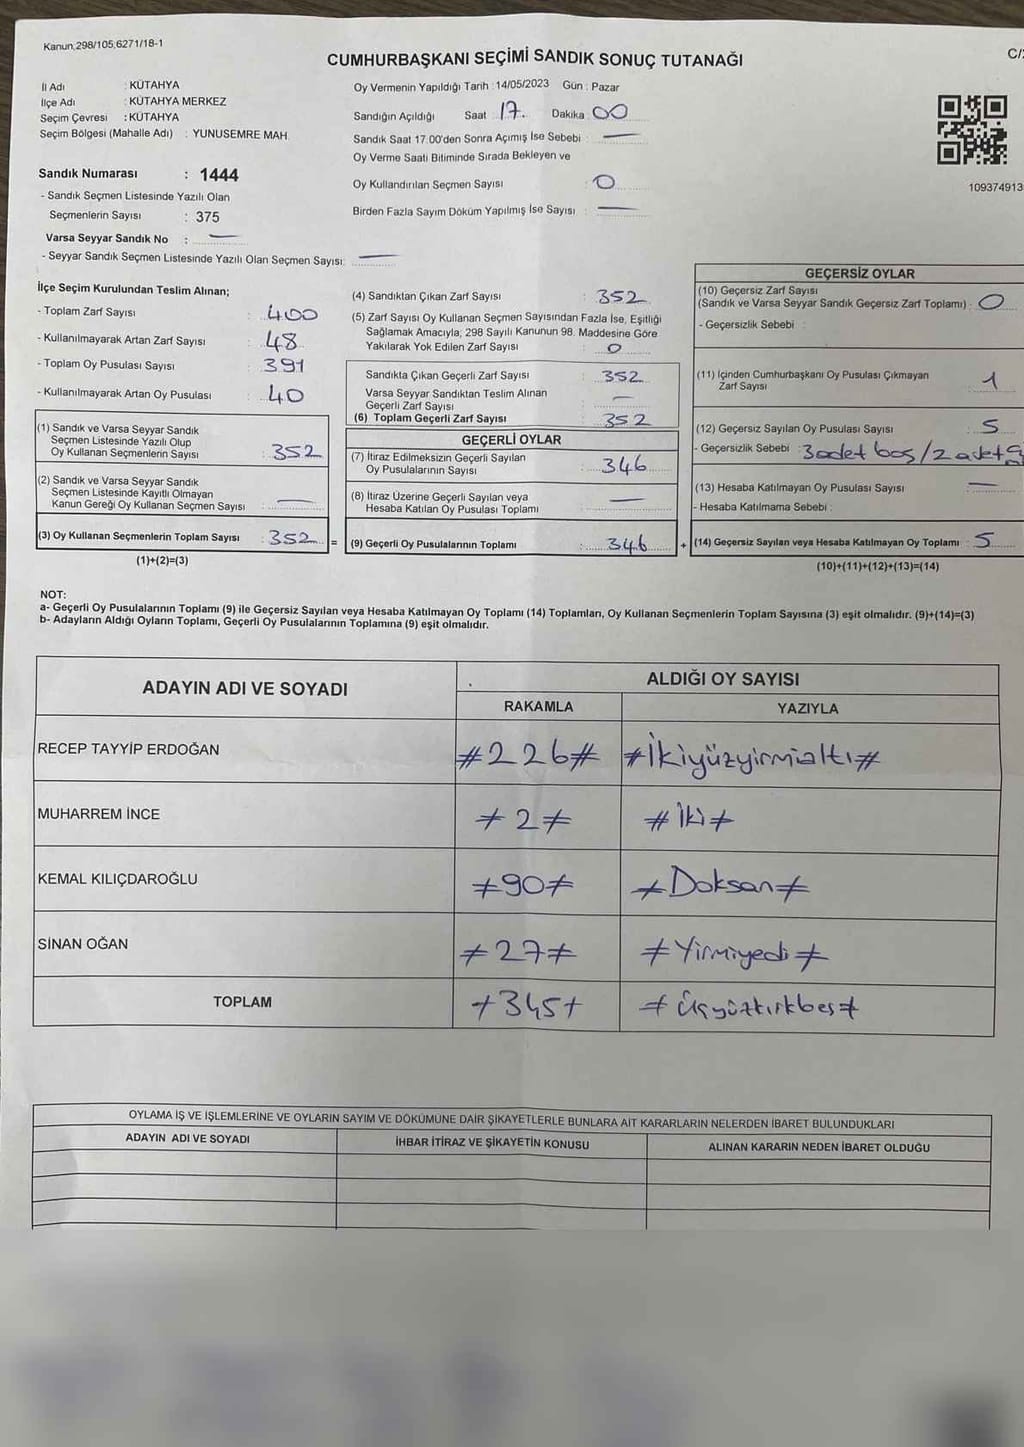 Kanun,298/105,6271/18-1
CUMHURBAŞKANI SEÇİMİ SANDIK SONUÇ TUTANAĞI
İl Adı : KÜTAHYA
İlçe Adı : KÜTAHYA MERKEZ
Seçim Çevresi : KÜTAHYA
Seçim Bölgesi (Mahalle Adı) : YUNUSEMRE MAH.
Sandık Numarası : 1444
- Sandık Seçmen Listesinde Yazılı Olan
Seçmenlerin Sayısı : 375
Varsa Seyyar Sandık No : —
- Seyyar Sandık Seçmen Listesinde Yazılı Olan Seçmen Sayısı: —
Oy Vermenin Yapıldığı Tarih : 14/05/2023 Gün : Pazar
Sandığın Açıldığı Saat : 17. Dakika : 00
Sandık Saat 17.00'den Sonra Açımış İse Sebebi : —
Oy Verme Saati Bitiminde Sırada Bekleyen ve
Oy Kullandırılan Seçmen Sayısı : 0
Birden Fazla Sayım Döküm Yapılmış İse Sayısı : —
109374913
İlçe Seçim Kurulundan Teslim Alınan;
- Toplam Zarf Sayısı : 400
- Kullanılmayarak Artan Zarf Sayısı : 48
- Toplam Oy Pusulası Sayısı : 391
- Kullanılmayarak Artan Oy Pusulası : 40
(1) Sandık ve Varsa Seyyar Sandık
Seçmen Listesinde Yazılı Olup
Oy Kullanan Seçmenlerin Sayısı : 352
(2) Sandık ve Varsa Seyyar Sandık
Seçmen Listesinde Kayıtlı Olmayan
Kanun Gereği Oy Kullanan Seçmen Sayısı : —
(3) Oy Kullanan Seçmenlerin Toplam Sayısı : 352 =
(1)+(2)=(3)
(4) Sandıktan Çıkan Zarf Sayısı : 352
(5) Zarf Sayısı Oy Kullanan Seçmen Sayısından Fazla İse, Eşitliği
Sağlamak Amacıyla; 298 Sayılı Kanunun 98. Maddesine Göre
Yakılarak Yok Edilen Zarf Sayısı : 0
Sandıkta Çıkan Geçerli Zarf Sayısı : 352
Varsa Seyyar Sandıktan Teslim Alınan
Geçerli Zarf Sayısı : —
(6) Toplam Geçerli Zarf Sayısı : 352
GEÇERLİ OYLAR
(7) İtiraz Edilmeksizin Geçerli Sayılan
Oy Pusulalarının Sayısı : 346
(8) İtiraz Üzerine Geçerli Sayılan veya
Hesaba Katılan Oy Pusulası Toplamı : —
(9) Geçerli Oy Pusulalarının Toplamı : 346 +
GEÇERSİZ OYLAR
(10) Geçersiz Zarf Sayısı
(Sandık ve Varsa Seyyar Sandık Geçersiz Zarf Toplamı) : 0
- Geçersizlik Sebebi :
(11) İçinden Cumhurbaşkanı Oy Pusulası Çıkmayan
Zarf Sayısı : 1
(12) Geçersiz Sayılan Oy Pusulası Sayısı : 5
- Geçersizlik Sebebi : 3 adet boş / 2 adet
(13) Hesaba Katılmayan Oy Pusulası Sayısı : —
- Hesaba Katılmama Sebebi :
(14) Geçersiz Sayılan veya Hesaba Katılmayan Oy Toplamı : 5
(10)+(11)+(12)+(13)=(14)
NOT:
a- Geçerli Oy Pusulalarının Toplamı (9) ile Geçersiz Sayılan veya Hesaba Katılmayan Oy Toplamı (14) Toplamları, Oy Kullanan Seçmenlerin Toplam Sayısına (3) eşit olmalıdır. (9)+(14)=(3)
b- Adayların Aldığı Oyların Toplamı, Geçerli Oy Pusulalarının Toplamına (9) eşit olmalıdır.
ADAYIN ADI VE SOYADI
ALDIĞI OY SAYISI
RAKAMLA YAZIYLA
RECEP TAYYİP ERDOĞAN #226# #İkiyüzyirmialtı#
MUHARREM İNCE ≠2≠ #İki≠
KEMAL KILIÇDAROĞLU ≠90≠ ≠Doksan≠
SİNAN OĞAN ≠27≠ ≠Yirmiyedi≠
TOPLAM +345+ ≠Üçyüzkırkbeş≠
OYLAMA İŞ VE İŞLEMLERİNE VE OYLARIN SAYIM VE DÖKÜMÜNE DAİR ŞİKAYETLERLE BUNLARA AİT KARARLARIN NELERDEN İBARET BULUNDUKLARI
ADAYIN ADI VE SOYADI İHBAR İTİRAZ VE ŞİKAYETİN KONUSU ALINAN KARARIN NEDEN İBARET OLDUĞU